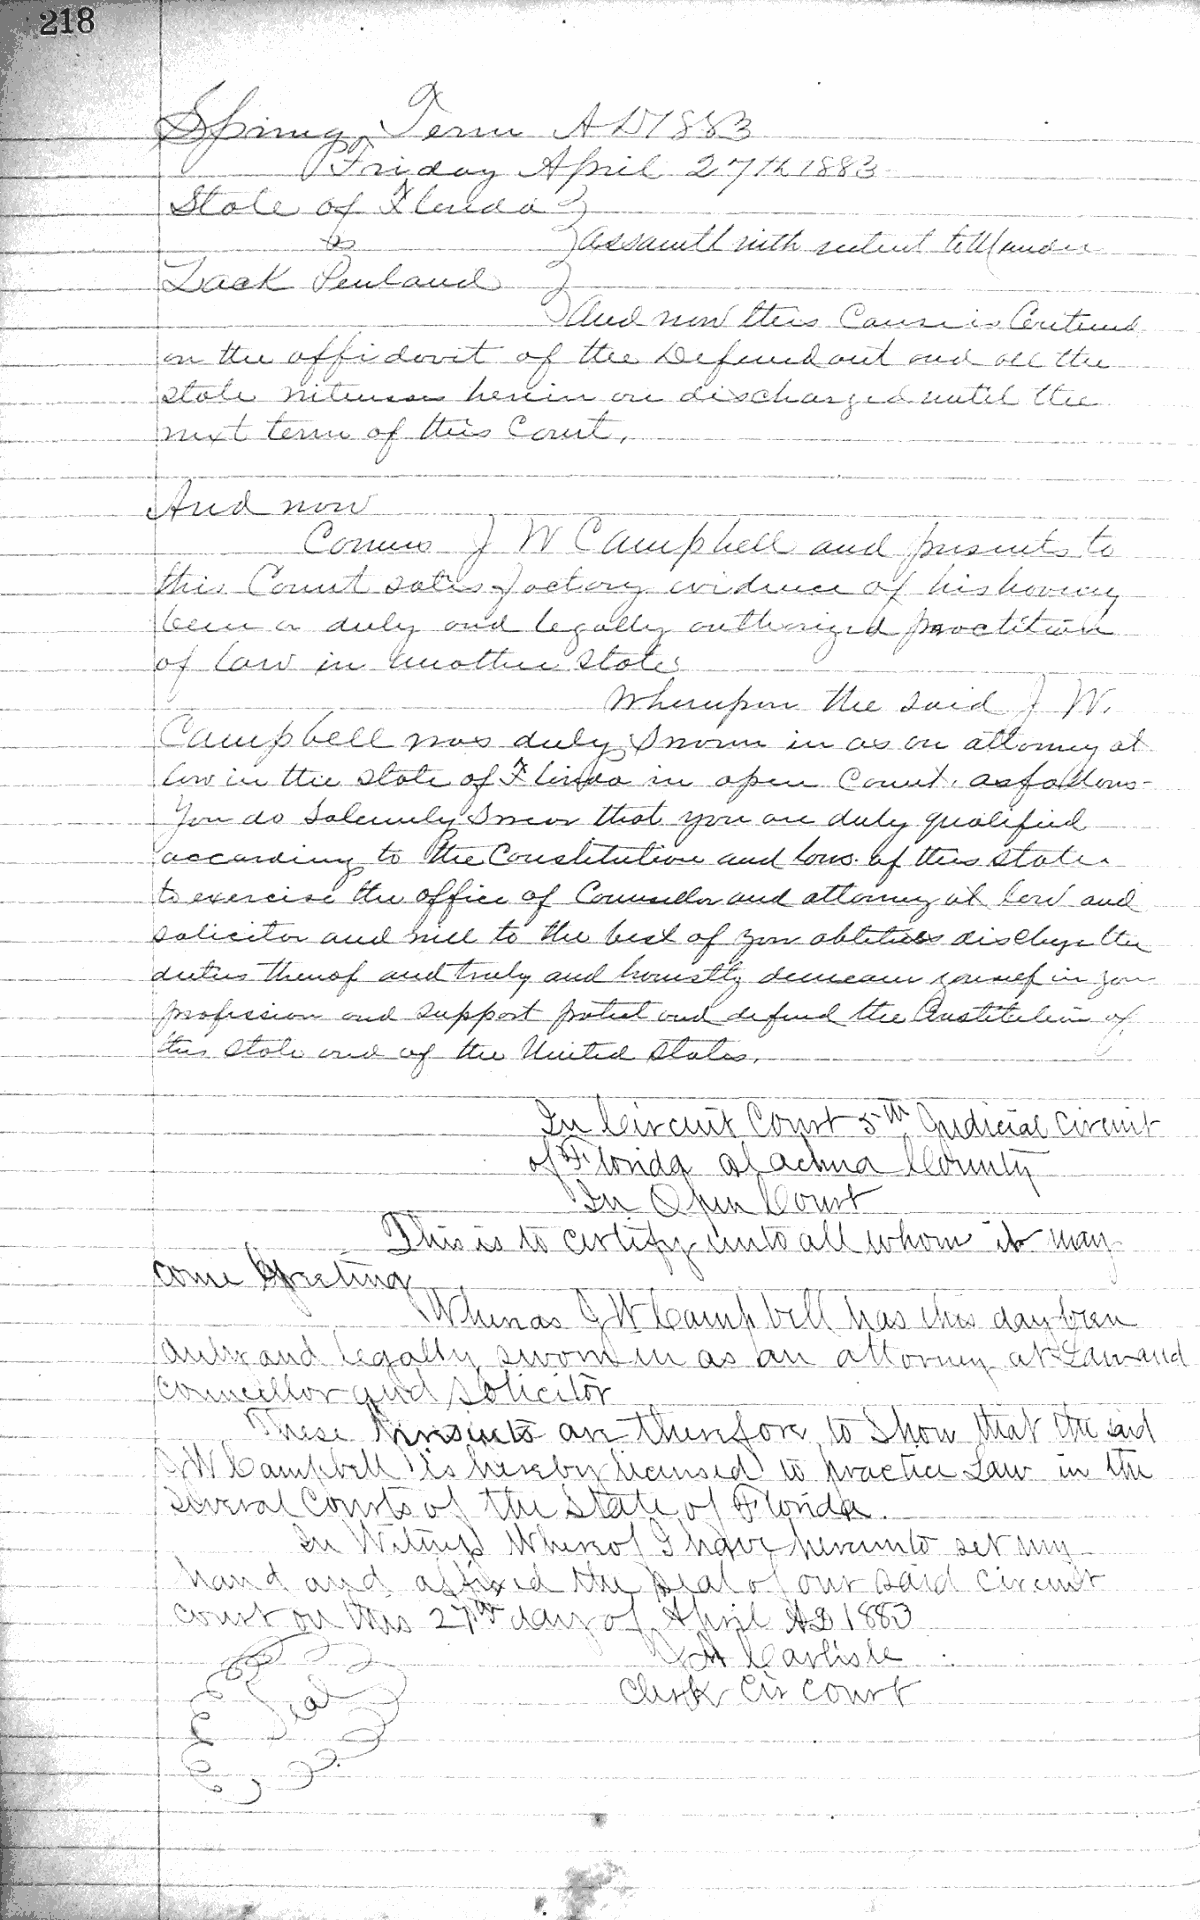 218
Spring Term A D 1883
Friday April 27th 1883
State of Florida
vs
assault with intent to Murder
Zack Penland
And now this Cause is Contend
on the affidavit of the Defendant and all the
state witnesses herein are discharged until the
next term of this Court.
And now
Comes J W Campbell and presents to
this Court satisfactory evidence of his having
been a duly and legally authorized practition
of law in another state
Whereupon the said J W.
Campbell was duly Sworn in as an attorney at
law in the state of Florida in open Court. as follows-
You do Solemnly Swear that you are duly qualified
according to the Constitution and laws of this state
to exercise the office of Counsellor and attorney at law and
solicitor and will to the best of your abilities discharge the
duties thereof and truly and honestly demean yourself in your
profession and support protect and defend the Constitution of
this state and of the United States.
In Circuit Court 5th Judicial Circuit
of Florida Alachua County
In Open Court
This is to certify unto all whom it may
come Greeting
Whereas J W Campbell has this day been
duly and legally sworn in as an attorney at Law and
councillor and solicitor
These are therefore to Show that the said
J W Campbell is hereby licensed to practice Law in the
several Courts of the State of Florida.
In Witness Whereof I have hereunto set my
hand and affixed the seal of our said circuit
court on this 27th day of April AD 1883
J A Carlisle
Clerk Cir Court
Seal